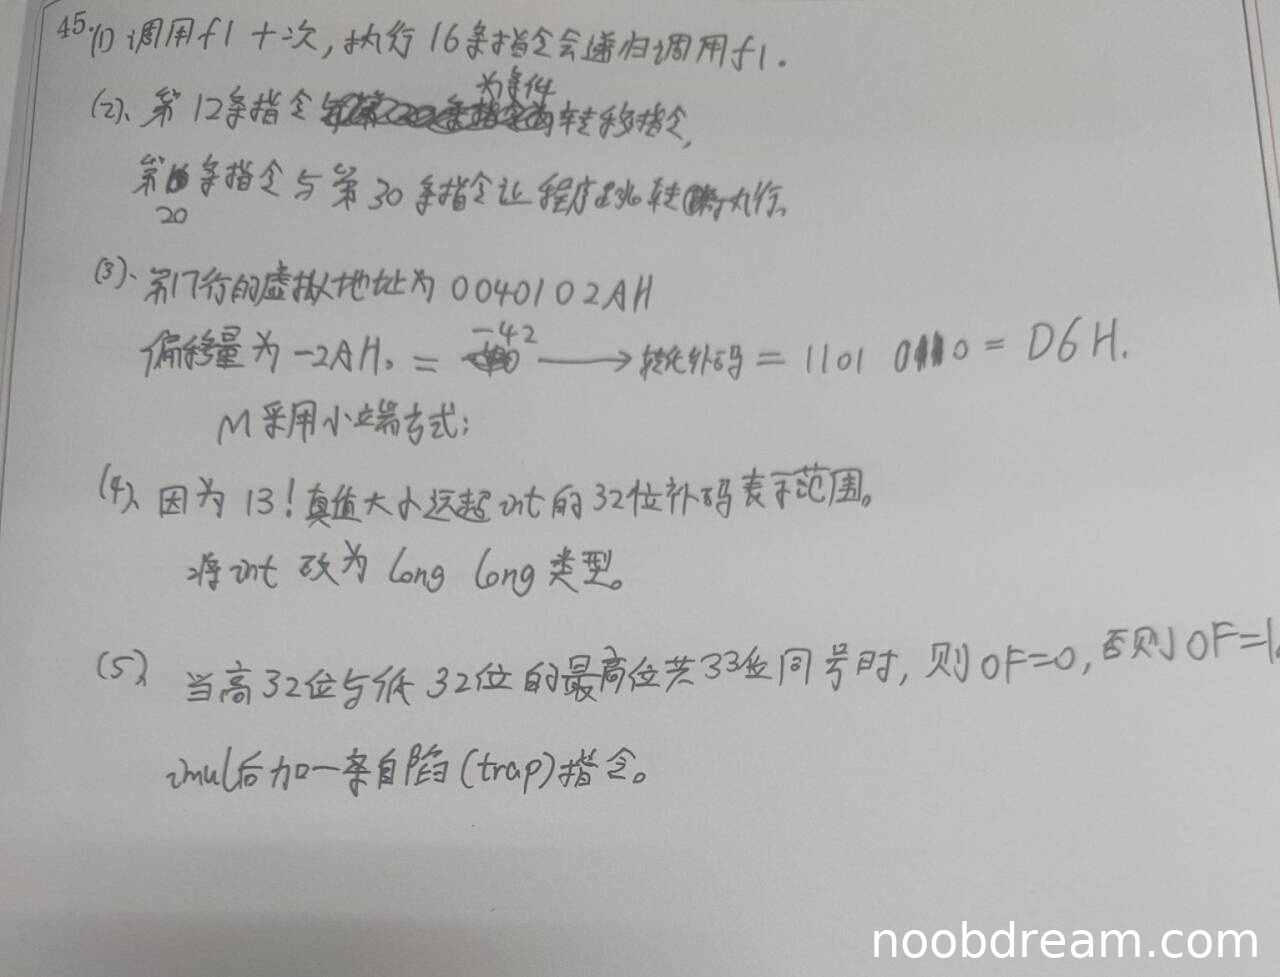 45.(1) 调用f1十次,执行16条指令会递归调用f1.
(2)、第12条指令为条件转移指令,
第20条指令与第30条指令让程序跳转执行。
(3)、第17行的虚拟地址为 0040102AH
偏移量为 -2AH。= -42 → 转化补码 = 1101 0110 = D6H.
M采用小端方式;
(4)、因为 13!真值大小远超int的32位补码表示范围。
将int 改为 long long 类型。
(5)、当高32位与低32位的最高位共33位同号时,则OF=0,否则OF=1。
imul后加一条自陷(trap)指令。
noobdream.com